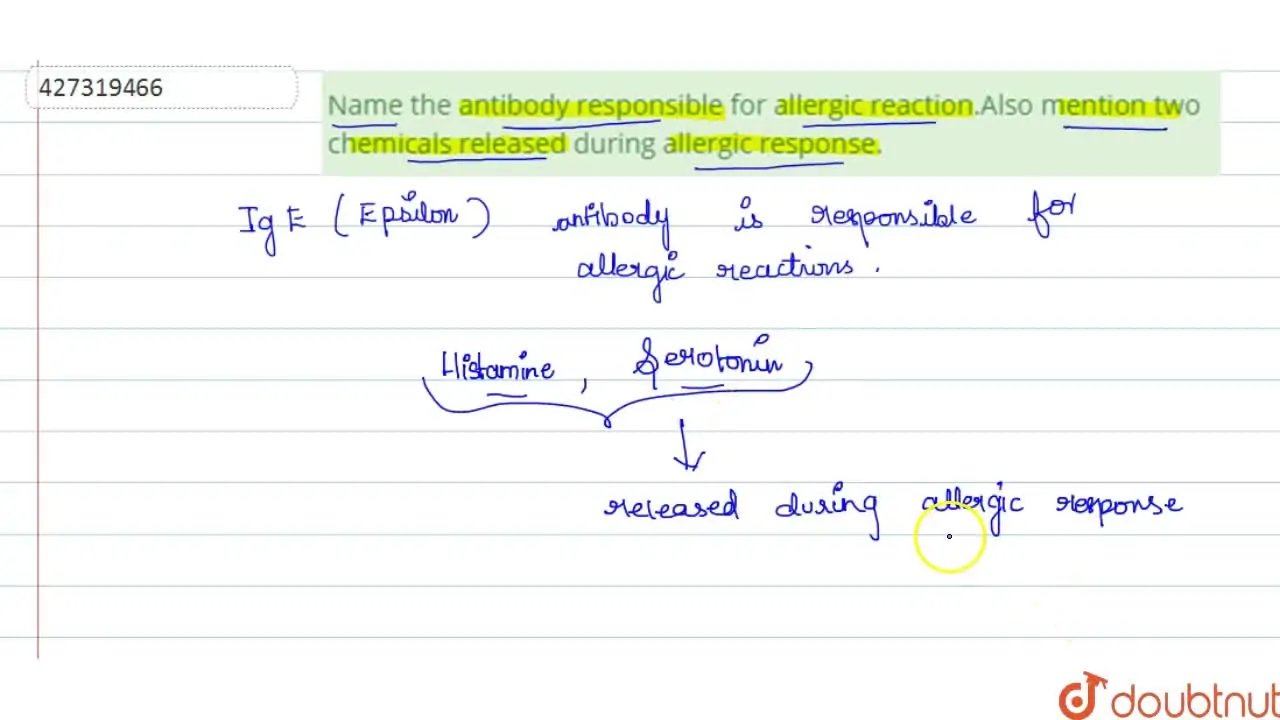 427319466
Name the antibody responsible for allergic reaction.Also mention two
chemicals released during allergic response.
IgE (Epsilon) antibody is responsible for
allergic reactions.
Histamine, Serotonin
released during allergic response
doubtnut